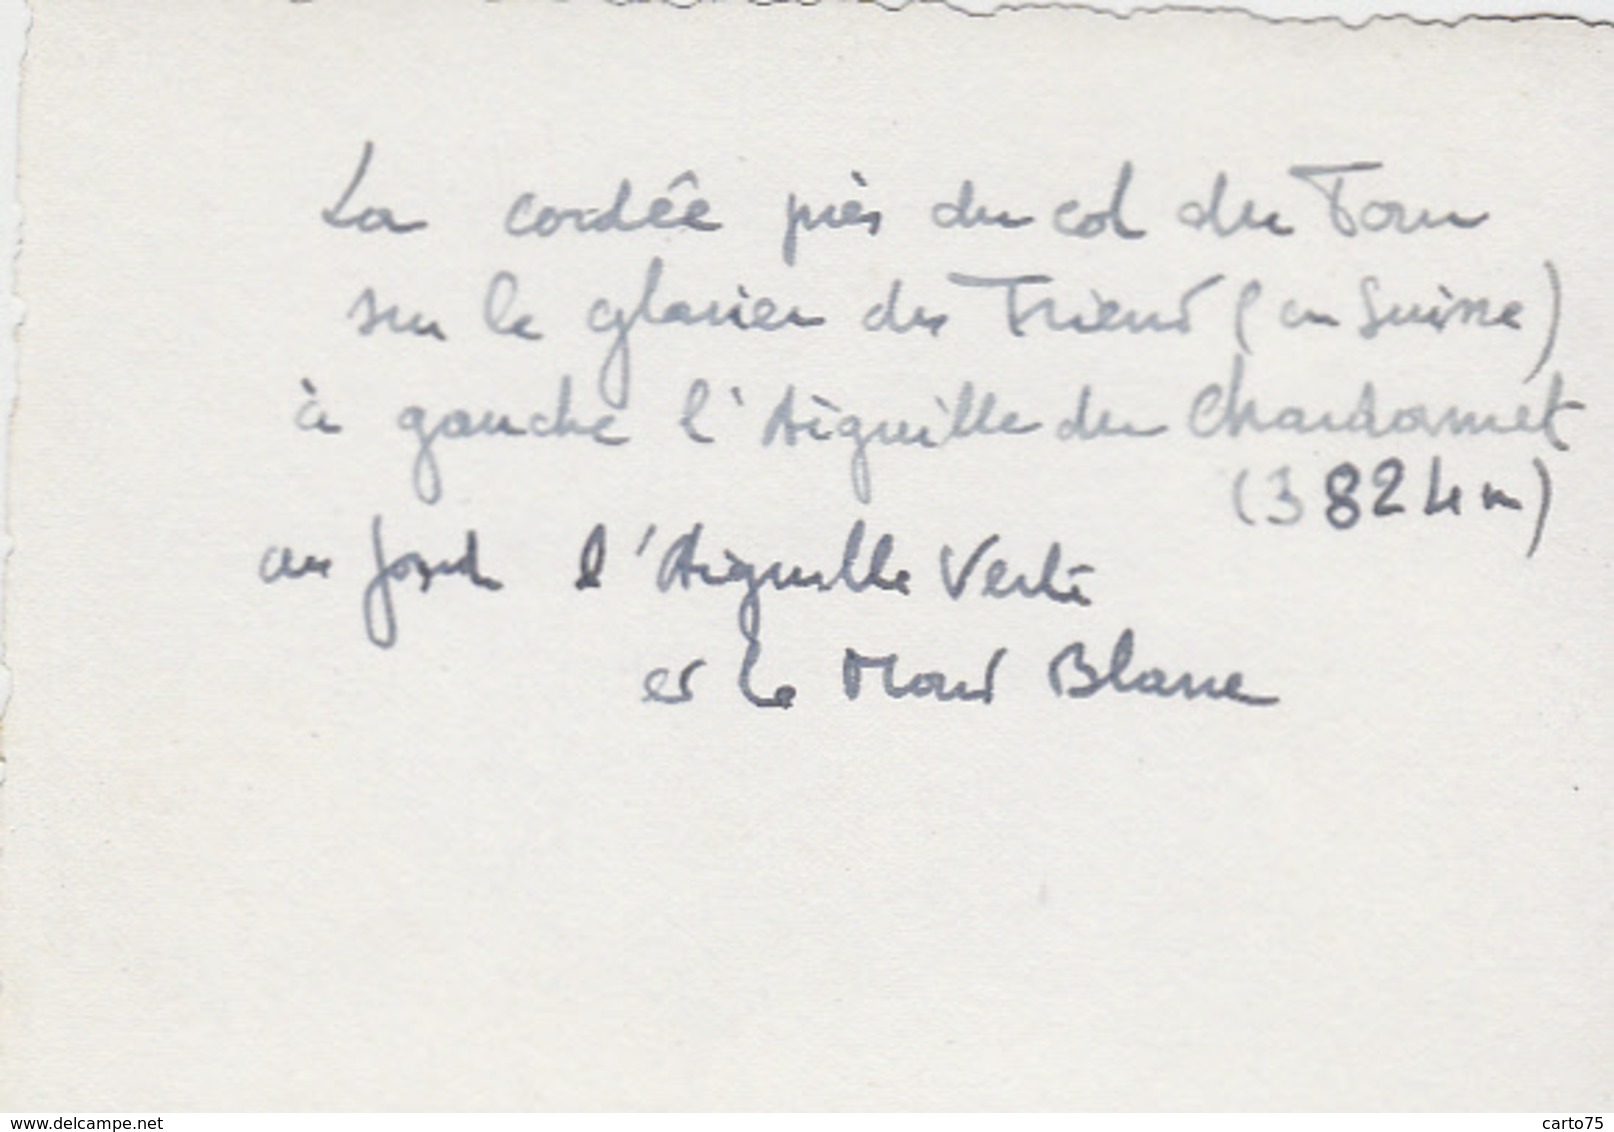 La cordée près du col du Tour
sur le glacier du Trient (en Suisse)
à gauche l'Aiguille du Chardonnet
(3 824 m)
au fond l'Aiguille Verte
et le Mont Blanc
www.delcampe.net
carto75